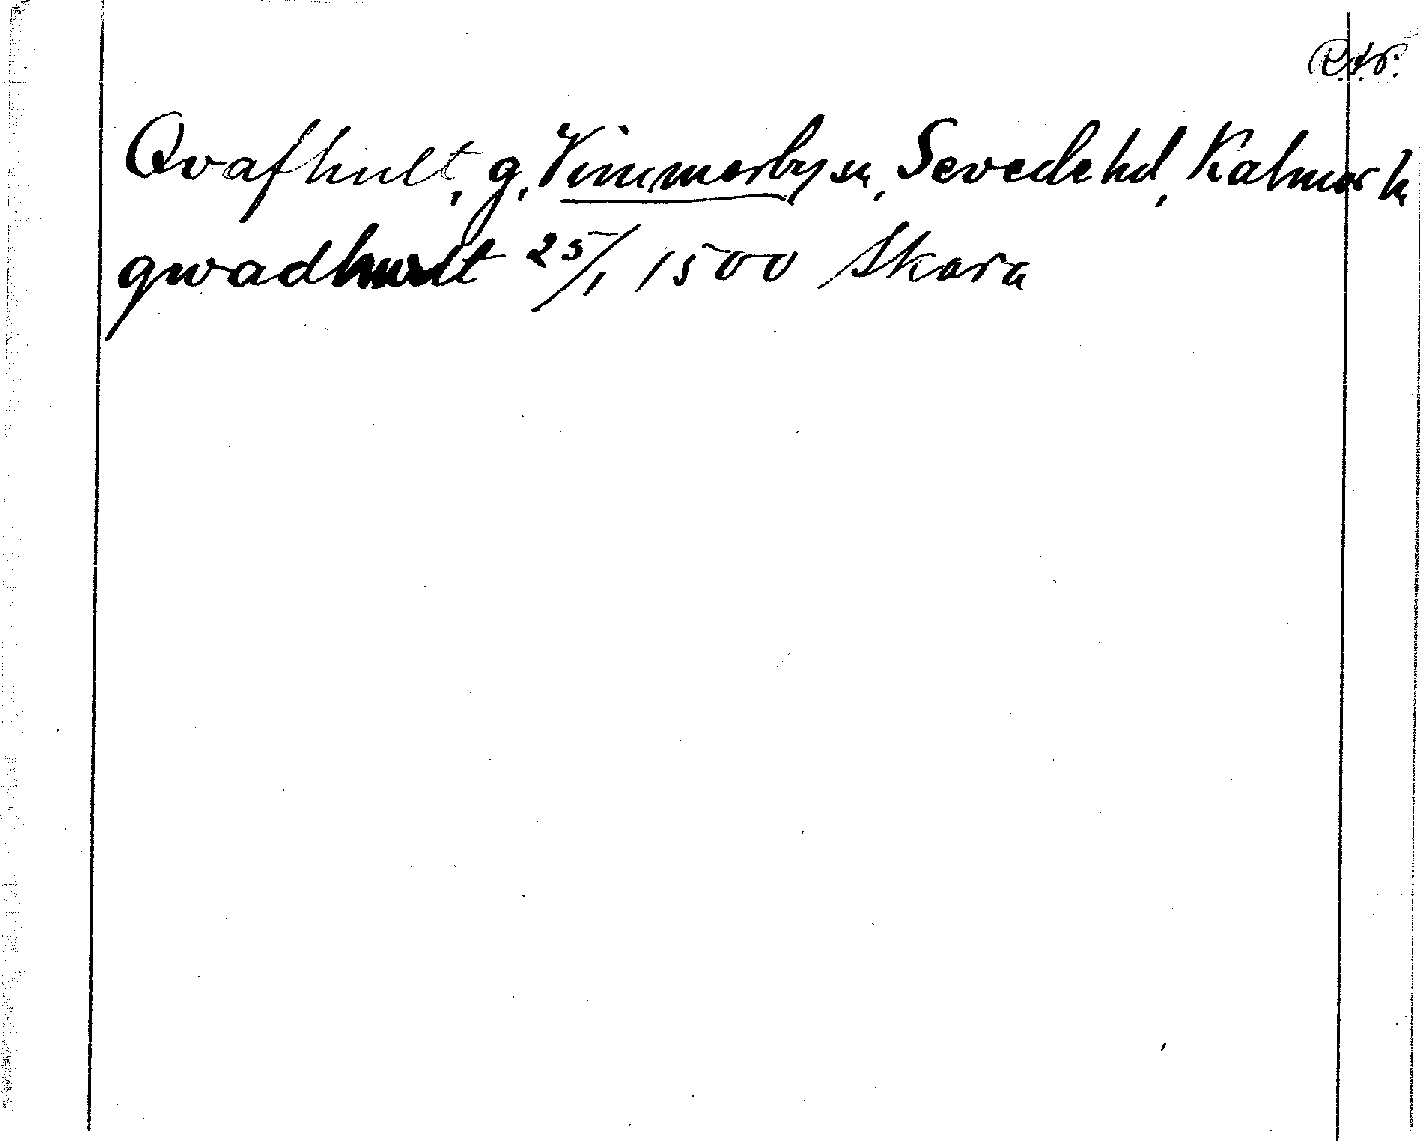 R.A.P.
Qvafhult, g, Vimmerby sn, Sevede hd, Kalmar l.
qwadhwlt 25/1 1500 Skara